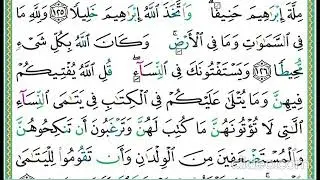 مِلَّةَ إِبْرَٰهِيمَ حَنِيفًا ۗ وَٱتَّخَذَ ٱللَّهُ إِبْرَٰهِيمَ خَلِيلًا ١٢٥ وَلِلَّهِ مَا
فِى ٱلسَّمَٰوَٰتِ وَمَا فِى ٱلْأَرْضِ ۚ وَكَانَ ٱللَّهُ بِكُلِّ شَىْءٍ
مُّحِيطًا ١٢٦ وَيَسْتَفْتُونَكَ فِى ٱلنِّسَآءِ ۖ قُلِ ٱللَّهُ يُفْتِيكُمْ
فِيهِنَّ وَمَا يُتْلَىٰ عَلَيْكُمْ فِى ٱلْكِتَٰبِ فِى يَتَٰمَى ٱلنِّسَآءِ
ٱلَّٰتِى لَا تُؤْتُونَهُنَّ مَا كُتِبَ لَهُنَّ وَتَرْغَبُونَ أَن تَنكِحُوهُنَّ
وَٱلْمُسْتَضْعَفِينَ مِنَ ٱلْوِلْدَٰنِ وَأَن تَقُومُوا۟ لِلْيَتَٰمَىٰ